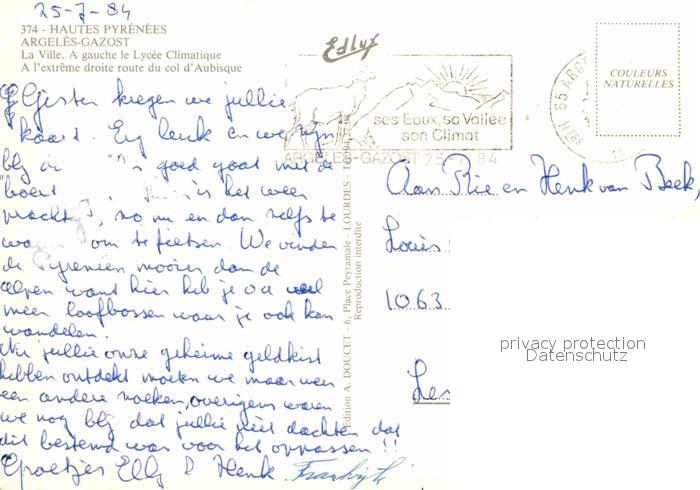 25-7-84
374 - HAUTES PYRÉNÉES
ARGELÈS-GAZOST
La Ville. A gauche le Lycée Climatique
A l'extrême droite route du col d'Aubisque
Edlux
ses Eaux, sa Vallée
son Climat
ARGELÈS-GAZOST 25-7 84
65 ARG
Htes
COULEURS
NATURELLES
Gisteren kregen we jullie
kaart. Erg leuk en we zijn
blij goed gaat met de
boot is het weer
prachtig, zo nu en dan zelfs te
om te fietsen. We vinden
de Pyreneën mooier dan de
alpen want hier heb je veel
meer loofbossen waar je ook kan
wandelen.
Nu jullie onze geheime geldkist
hebben ontdekt moeten we maar weer
een andere zoeken, overigens waren
we nog blij dat jullie niet dachten dat
dit bestemd was voor het oppassen !!
Groetjes Elly & Henk.
Edition A. DOUCET - 6, Place Peyramale - LOURDES -
Reproduction interdite
Aan Rie en Henk van Beek,
Louis
1063
Les
privacy protection
Datenschutz